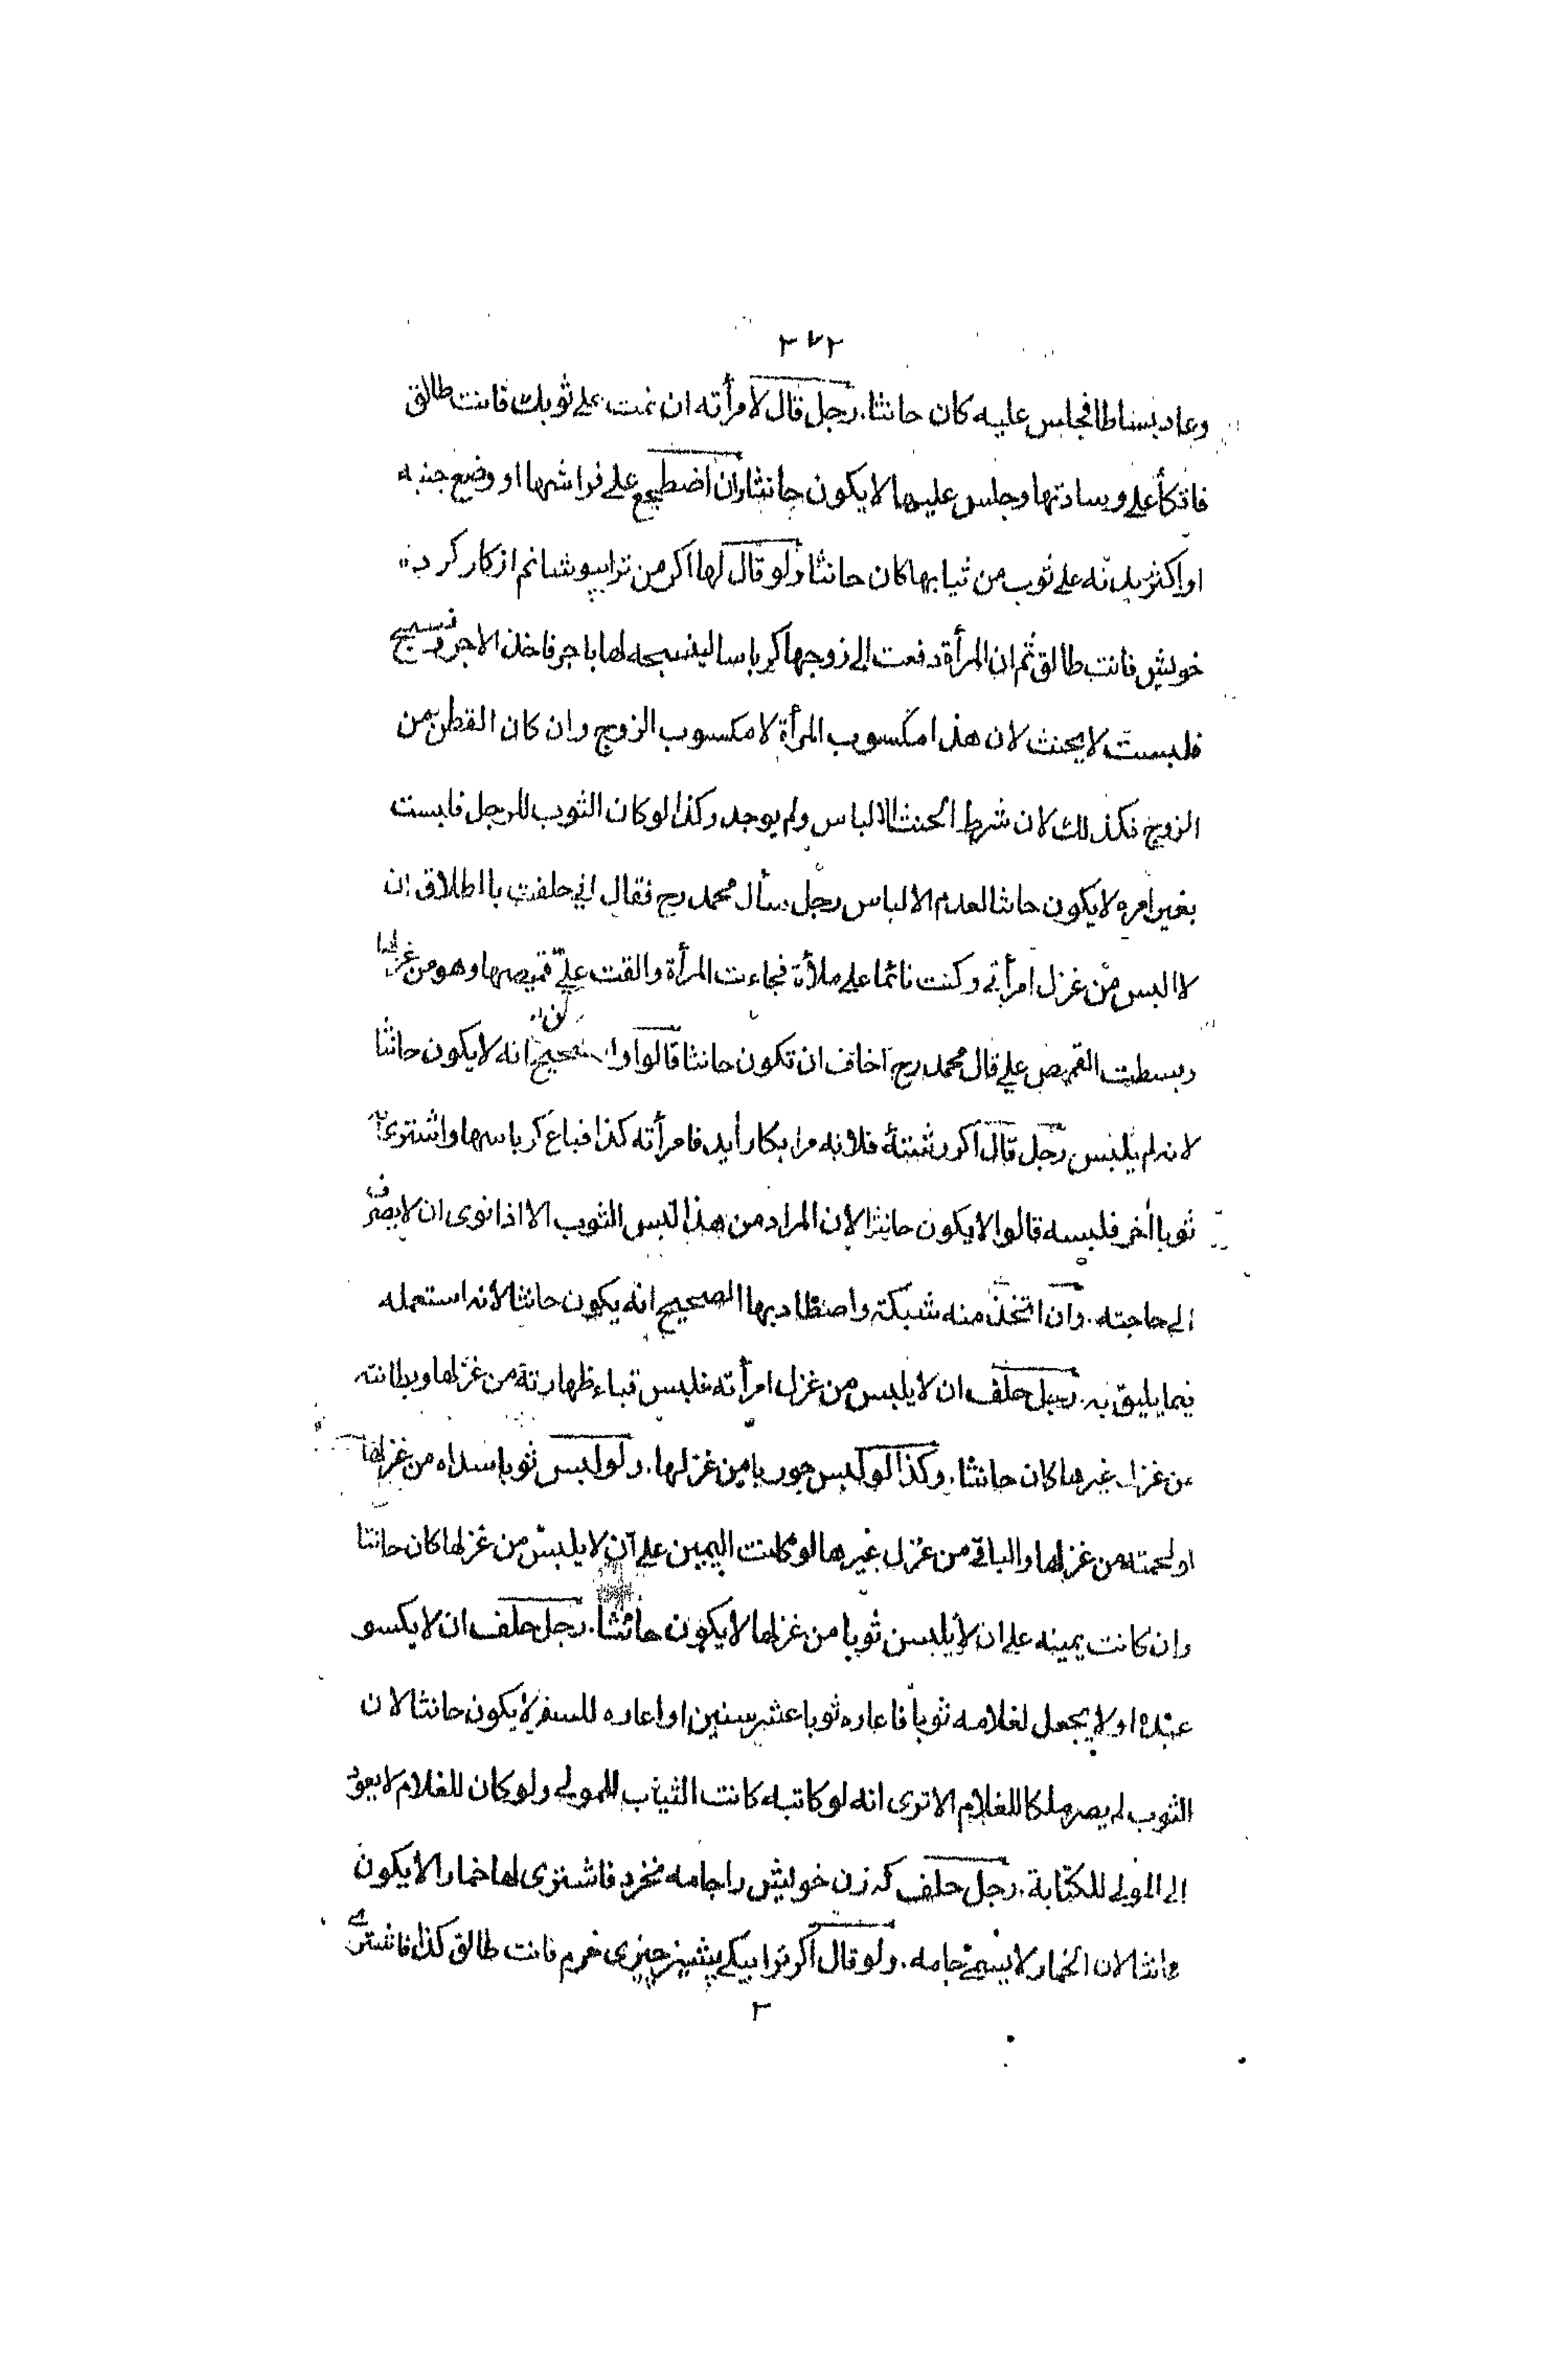 ٣٧٢
وعاد بساطا فجلس عليه كان حانثا. رجل قال لامرأته ان نمت على ثوبك فانت طالق
فاتكأ على وسادتها وجلس عليها لا يكون حانثا وان اضطجع على فراشها او وضع جنبه
او اكثر بدنه على ثوب من ثيابها كان حانثا ولو قال لها اكر من ترا بپوشانم از كار كرد
خويش فانت طالق ثم ان المرأة دفعت الى زوجها كرباسا لينسجه لها باجر فاخذ الاجر ونسج
فلبست لا يحنث لان هذا مكسوب المرأة لا مكسوب الزوج وان كان القطن من
الزوج فكذلك لان شرط الحنث الالباس ولم يوجد وكذا لو كان الثوب للرجل فلبست
بغير امره لا يكون حانثا لعدم الالباس رجل سأل محمد رح فقال انى حلفت بالطلاق ان
لا البس من غزل امرأتى وكنت نائما على ملأة فجاءت المرأة والقت علىّ قميصها وهو من غزلها
وبسطت القميص على قال محمد رح اخاف ان تكون حانثا قالوا والصحيح انه لا يكون حانثا
لانه لم يلبس رجل قال اكر رشتهٔ فلانه مرا بكار آيد فامرأته كذا فباع كرباسها واشترى
ثوبا اخر فلبسه قالوا لا يكون حانثا لان المراد من هذا لبس الثوب الا اذا نوى ان لا يصرف
الى حاجته. وان اتخذ منه شبكة واصطاد بها الصحيح انه يكون حانثا لانه استعمله
فيما يليق به. رجل حلف ان لا يلبس من غزل امرأته فلبس قباء ظهارته من غزلها وبطانته
من غزل غيرها كان حانثا. وكذا لو لبس جوربا من غزلها. ولو لبس ثوبا سداه من غزلها
او لحمته من غزلها والباقى من غزل غيرها لو كانت اليمين على ان لا يلبس من غزلها كان حانثا
وان كانت يمينه على ان لا يلبس ثوبا من غزلها لا يكون حانثا. رجل حلف ان لا يكسو
عبده او لا يجعل لغلامه ثوبا فاعاره ثوبا عشر سنين او اعاره للسفر لا يكون حانثا لان
الثوب لم يصر ملكا للغلام الا ترى انه لو كاتبه كانت الثياب للمولى ولو كان للغلام لا يعود
الى المولى للكتابة. رجل حلف كه زن خويش را جامه نخرد فاشترى لها خمارا لا يكون
حانثا لان الخمار لا يسمى جامه. ولو قال اكر ترا بيكے پشيز چيزى خرم فانت طالق كذا فاشترى
٢